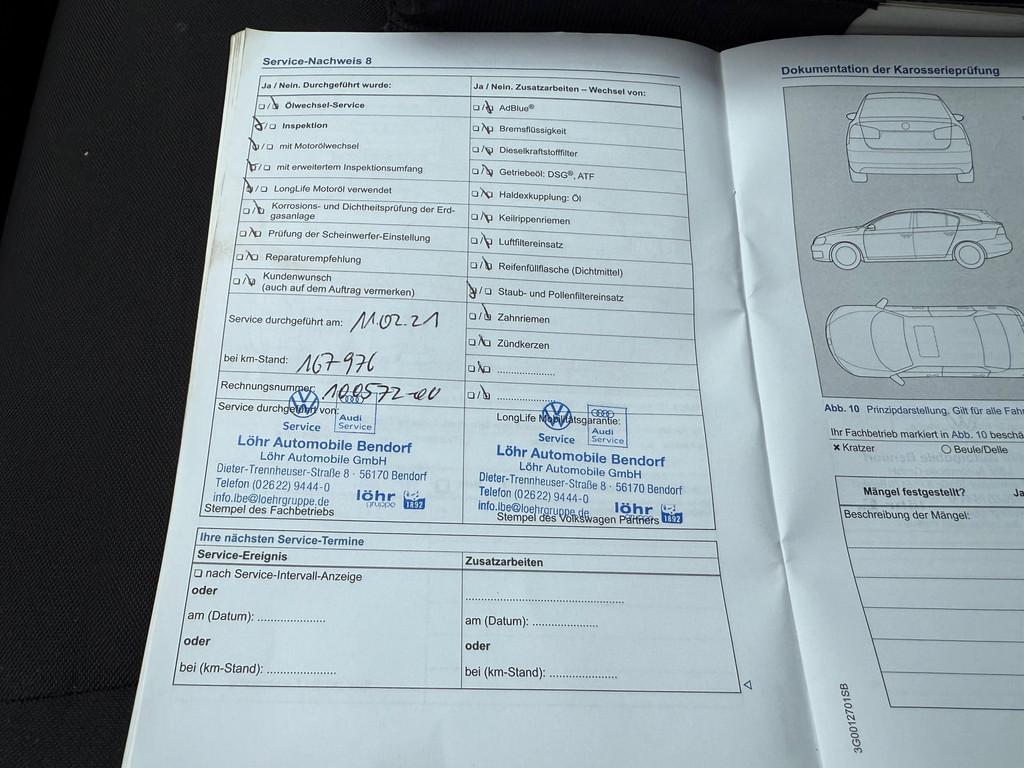 Service-Nachweis 8
Ja / Nein. Durchgeführt wurde:
Ölwechsel-Service
Inspektion
mit Motorölwechsel
mit erweitertem Inspektionsumfang
LongLife Motoröl verwendet
Korrosions- und Dichtheitsprüfung der Erd-
gasanlage
Prüfung der Scheinwerfer-Einstellung
Reparaturempfehlung
Kundenwunsch
(auch auf dem Auftrag vermerken)
Service durchgeführt am: 11.02.21
bei km-Stand: 167 976
Rechnungsnummer: 100572-00
Service durchgeführt von:
Service
Audi
Service
Löhr Automobile Bendorf
Löhr Automobile GmbH
Dieter-Trennheuser-Straße 8 · 56170 Bendorf
Telefon (02622) 9444-0
info.lbe@loehrgruppe.de
löhr
gruppe
1892
Stempel des Fachbetriebs
Ja / Nein. Zusatzarbeiten – Wechsel von:
AdBlue®
Bremsflüssigkeit
Dieselkraftstofffilter
Getriebeöl: DSG®, ATF
Haldexkupplung: Öl
Keilrippenriemen
Luftfiltereinsatz
Reifenfüllflasche (Dichtmittel)
Staub- und Pollenfiltereinsatz
Zahnriemen
Zündkerzen
LongLife Mobilitätsgarantie:
Service
Audi
Service
Löhr Automobile Bendorf
Löhr Automobile GmbH
Dieter-Trennheuser-Straße 8 · 56170 Bendorf
Telefon (02622) 9444-0
info.lbe@loehrgruppe.de
löhr
gruppe
1892
Stempel des Volkswagen Partners
Ihre nächsten Service-Termine
Service-Ereignis
nach Service-Intervall-Anzeige
oder
am (Datum): ....................
oder
bei (km-Stand): ....................
Zusatzarbeiten
am (Datum): ....................
oder
bei (km-Stand): ....................
Dokumentation der Karosserieprüfung
Abb. 10 Prinzipdarstellung. Gilt für alle
Ihr Fachbetrieb markiert in Abb. 10
x Kratzer
Beule/Delle
Mängel festgestellt?
Beschreibung der Mängel:
3G0012701SB